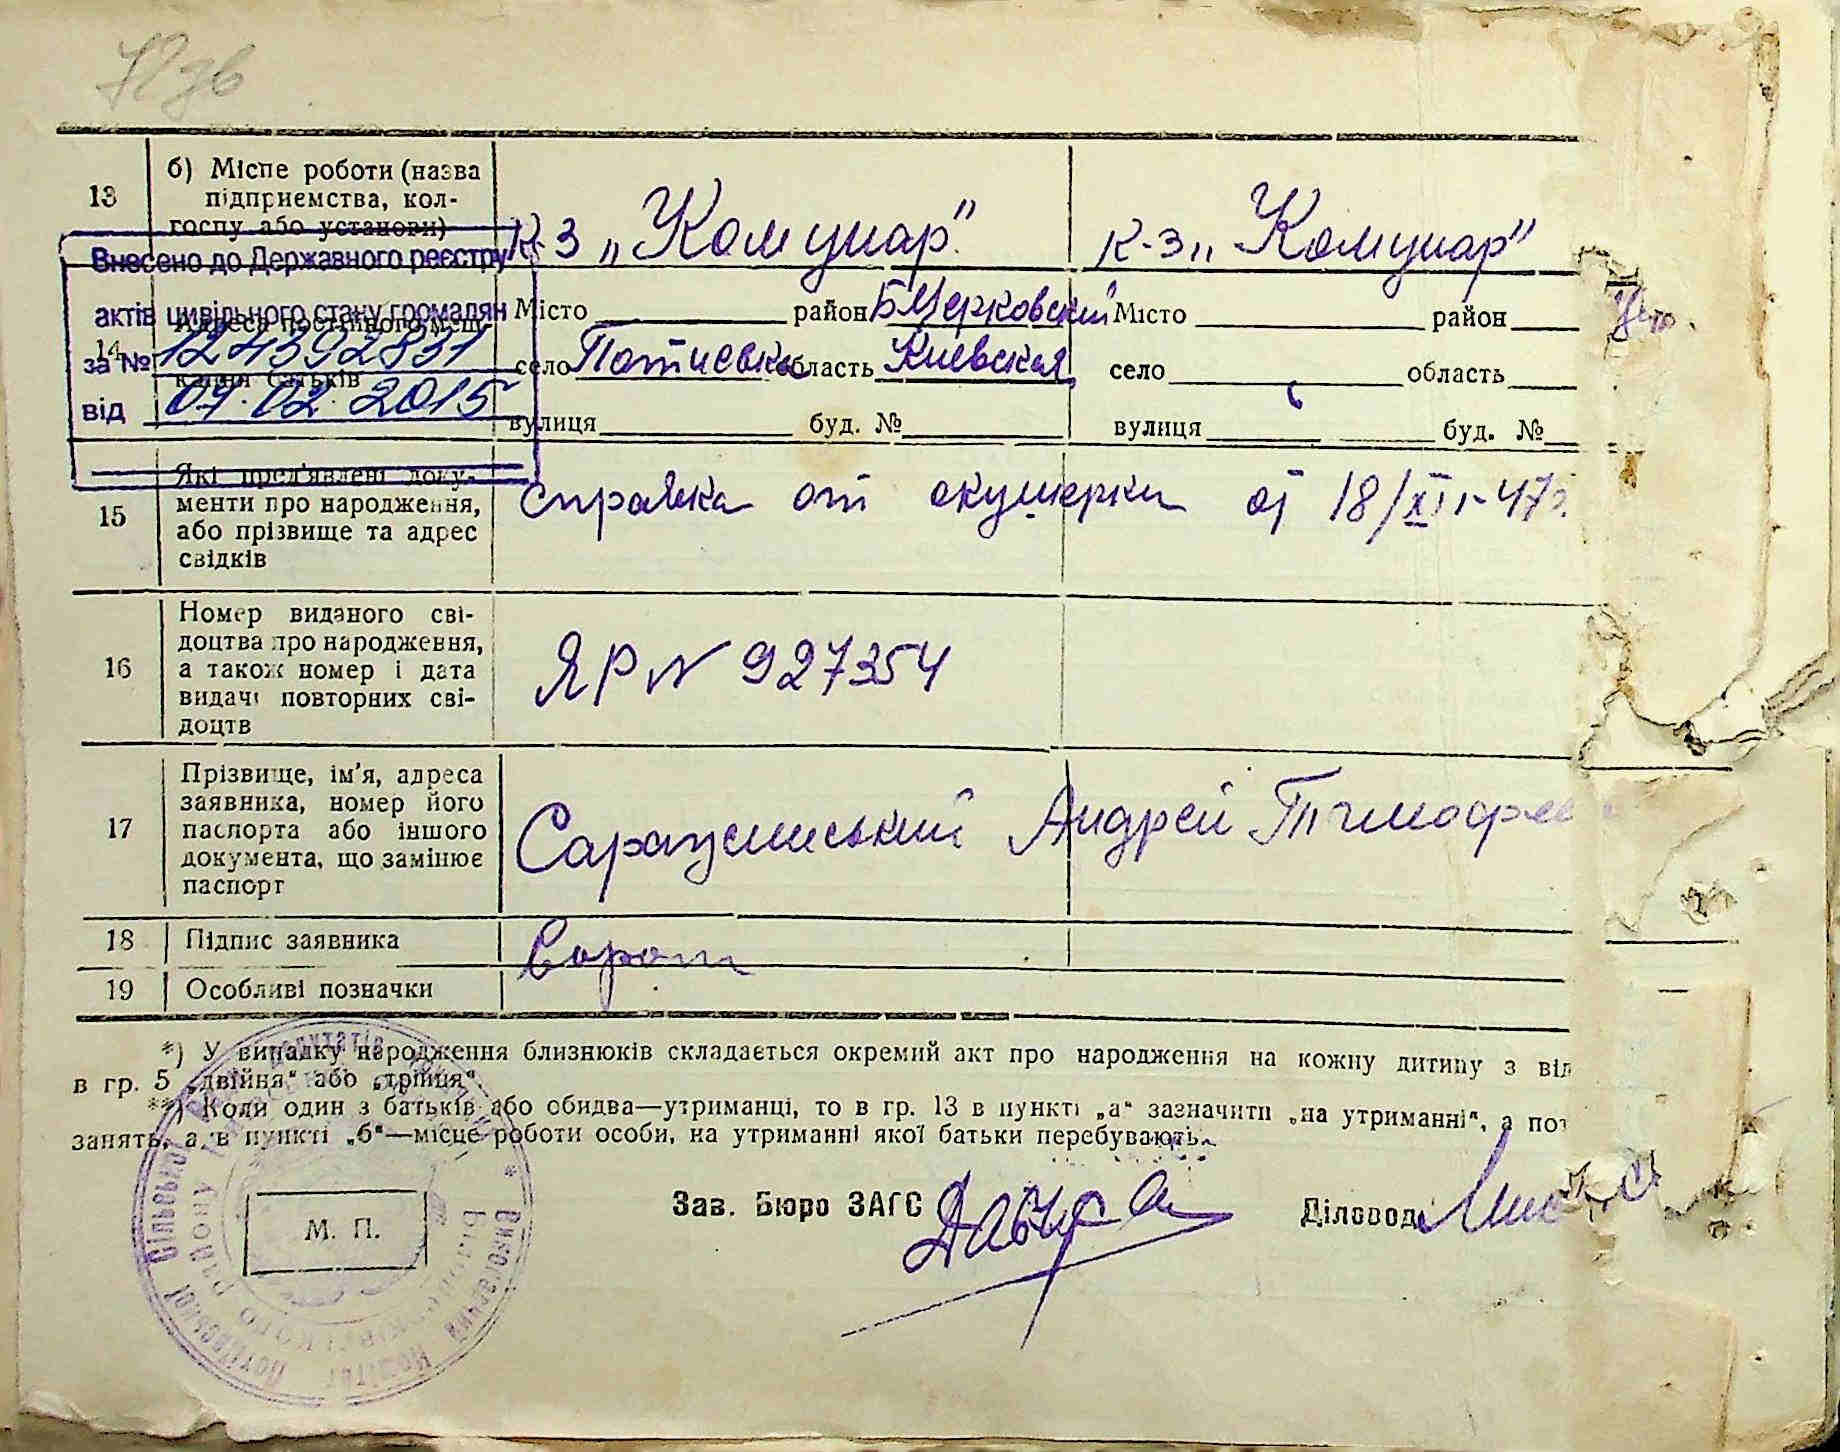 72 зв
13
б) Місце роботи (назва
підприємства, кол-
госпу або установи)
к-з „Комунар"
к-з „Комунар"
Внесено до Державного реєстру
актів цивільного стану громадян
за №
від 02.2015
14
Адреса постійного меш-
кання батьків
Місто район БЦерковский
село область Киевская
вулиця буд. №
Місто район
село область
вулиця буд. №
15
Які пред'явлені доку-
менти про народження,
або прізвище та адрес
свідків
справка от акушерки от 18/XII-47г.
16
Номер виданого сві-
доцтва про народження,
а також номер і дата
видачі повторних сві-
доцтв
ЯР № 927354
17
Прізвище, ім'я, адреса
заявника, номер його
паспорта або іншого
документа, що замінює
паспорт
Андрей Тимофе
18
Підпис заявника
19
Особливі позначки
*) У випадку народження близнюків складається окремий акт про народження на кожну дитину з від
в гр. 5 „двійня" або „трійця".
**) Коли один з батьків або обидва—утриманці, то в гр. 13 в пункті „а" зазначити „на утриманні", а пот
занять, а в пункті „б"—місце роботи особи, на утриманні якої батьки перебувають.
Зав. Бюро ЗАГС
Діловод
М. П.
Виконавчий Комітет Сільської
району